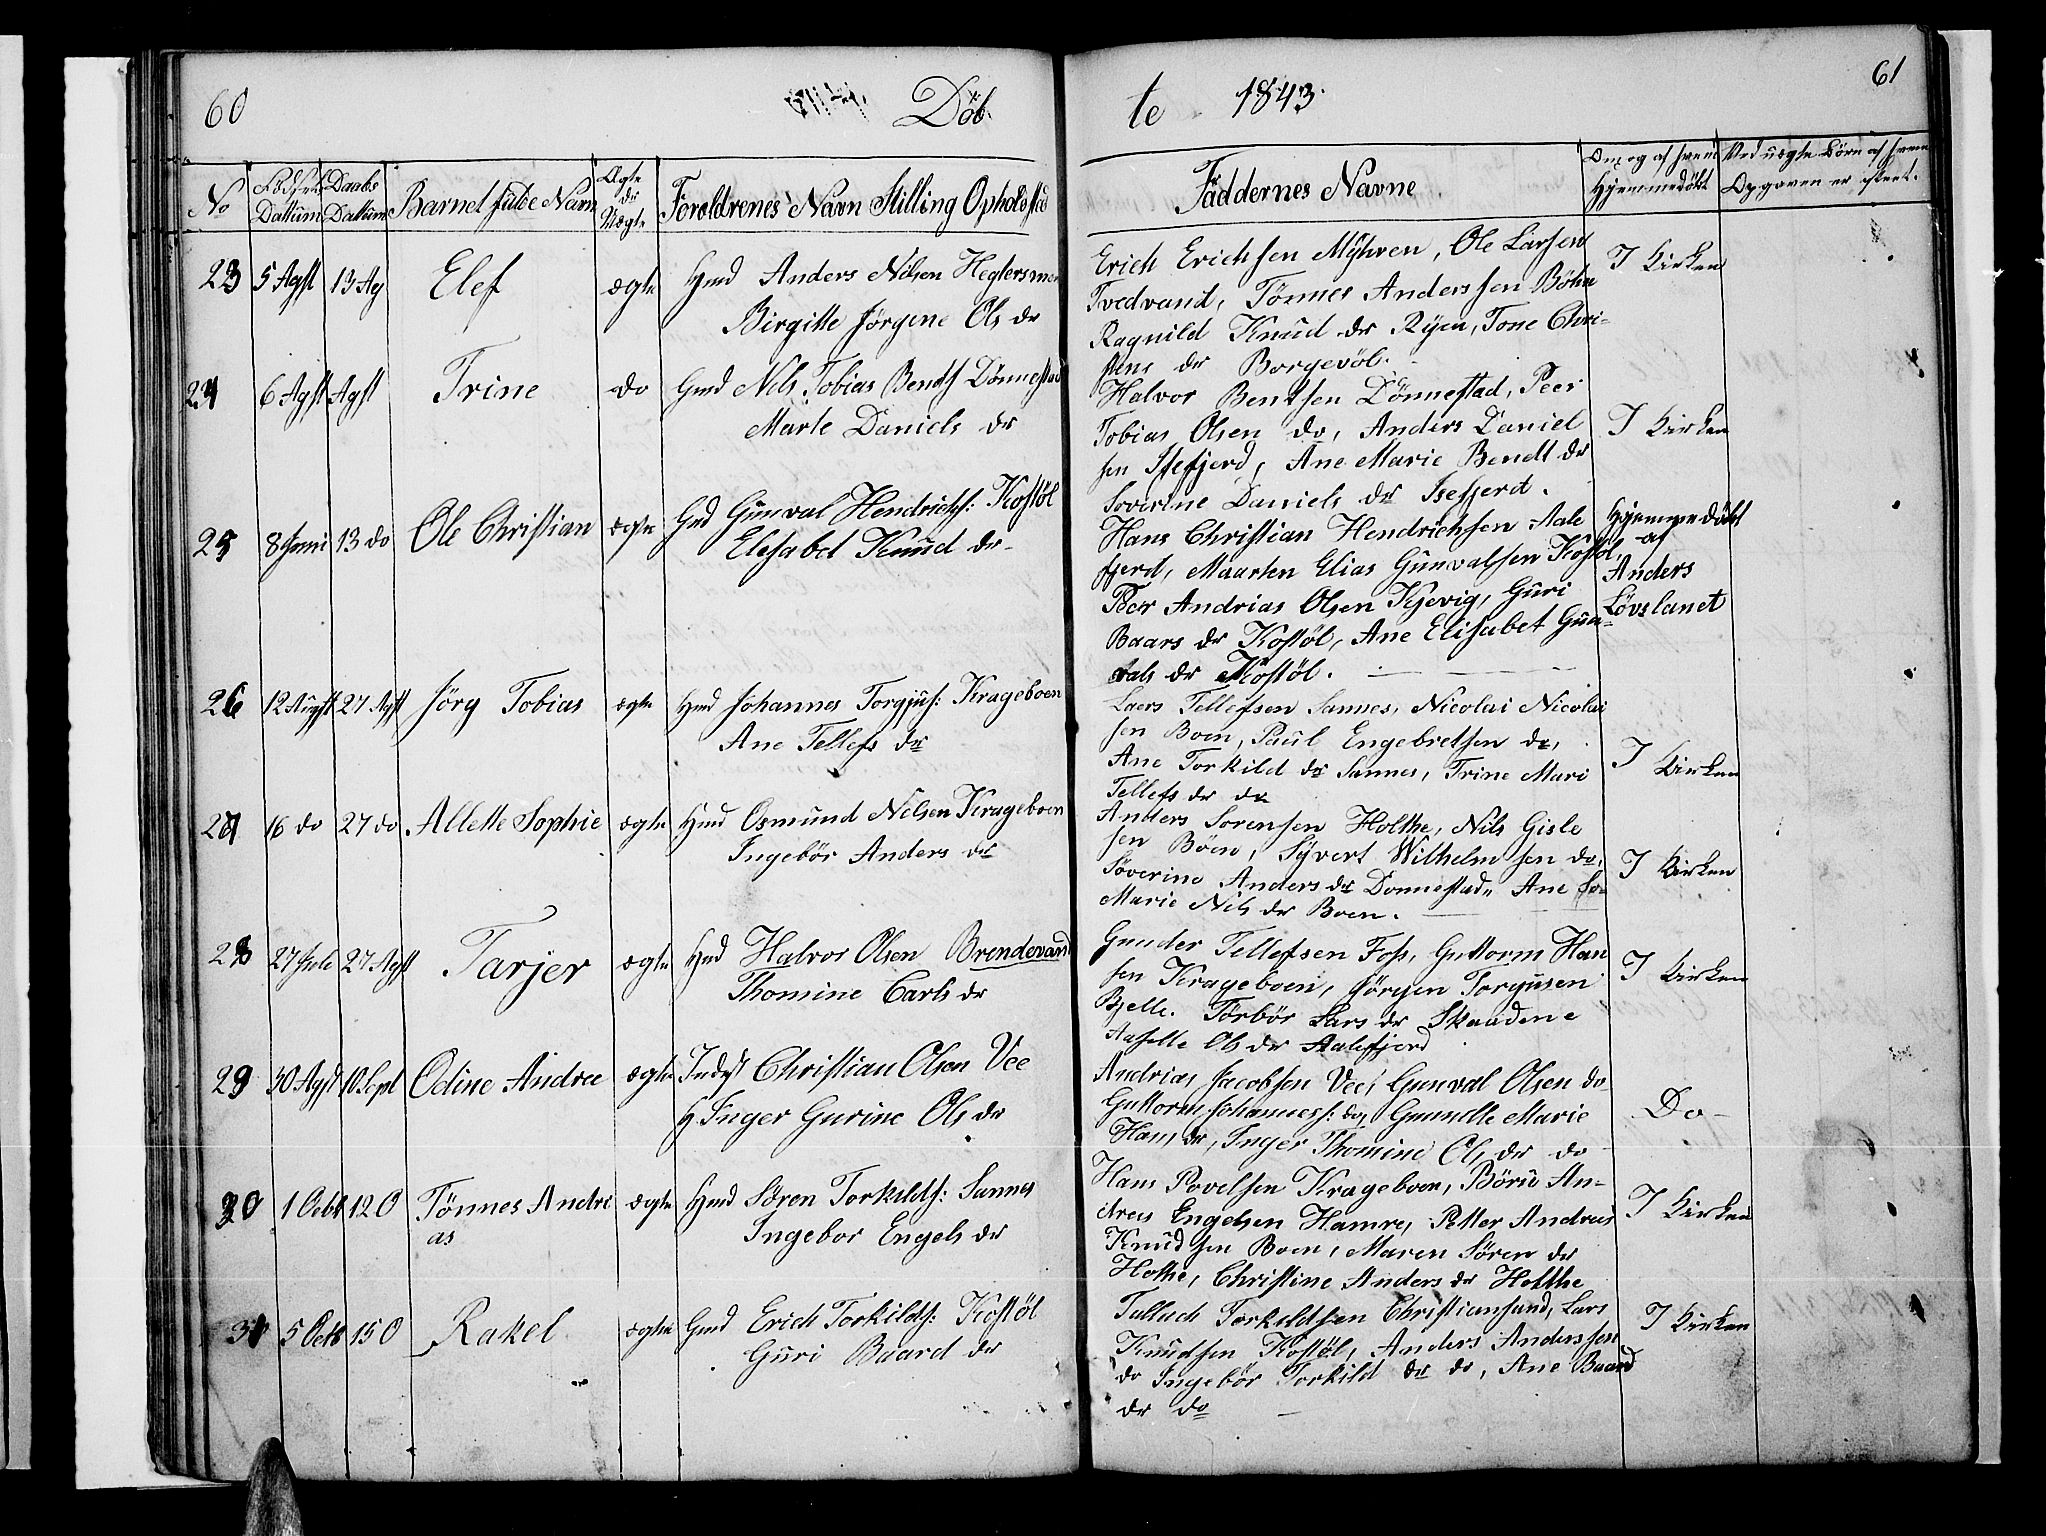 60
Döb
te 1843.
61
No
Fødsels Dattum
Daabs Dattum
Barnet fulde Navn
Ægte
Uægte
Foroldrenes Navn Stilling Opholdsted
Faddernes Navne
Om og af hvem Hjemmedøbt
Ved uægte Börn af hvem Opgaven er skeet.
23 5 Agst 13 Ag Elef ægte Hmd Anders Nilsen
Birgitte Jörgine Ols dr
Erich Erichsen Myhren, Ole Larsen
Tvedvand, Tönnes Anderssen Böhn
Ragnild Knud dr Ryen, Tone Chri-
stens dr Borgevöl.
I Kirken
24 6 Agst Agst Trine do Gmd Nils Tobias Bends Dönnestad
Marte Daniels dr
Halvor Bentsen Dönnestad, Peer
Tobias Olsen do, Anders Daniel
sen Isefjerd, Ane Marie Bendt dr
Soverine Daniels dr Isefjerd.
I Kirken
25 8 Juni 13 do Ole Christian ægte Gmd Gunval Hendrichs: Kostöl
Elesabet Knud dr
Hans Christian Hendrichsen Aale
fjerd, Maarten Elias Gunvalsen Kostöl,
Peer Andrias Olsen Kjevig, Guri
Baars dr Kostöl, Ane Elisabet Gun-
vals dr Kostöl.
Hjemmedöbt
af
Anders
Lövslanet
26 12 Augst 27 Agst Jörg Tobias ægte Hmd Johannes Torgjus: Krageboen
Ane Tellefs dr
Laers Tellefsen Sannes, Nicolai Nicolai
sen Boen, Paul Engebretsen do,
Ane Torkild dr Sannes, Trine Mari
Tellefs dr do
I Kirken
27 16 do 27 do Allette Sophie ægte Hmd Osmund Nelsen Krageboen
Ingebör Anders dr
Anders Sorensen Holthe, Nils Gisle
sen Böen, Syvert Wilhelmsen do,
Söverine Anders dr Donnestad, Ane
Marie Nils dr Boen.
I Kirken
28 27 Jule 27 Agst Tarjer ægte Hmd Halvor Olsen Brendevand
Thomine Carls dr
Gunder Tellefsen Foss, Guttorm Han
sen Krageboen, Jörgen Torgusen
Bjelle. Torbör Lars dr Skaadene
Ols dr Aalefjerd
I Kirken
29 30 Agst 10 Sept Odine Andrea ægte Indst Christian Olsen Vee
H Inger Gurine Ols dr
Andrias Jacobsen Vee, Gunval Olsen do
Guttorm Johannes: do, Gunnille Marie
Hans dr, Inger Thomine Ols dr do
Do
30 1 Octb 12 O Tönnes Andri
as
ægte Hmd Sören Torkilds: Sannes
Ingebor Engels dr
Hans Povelsen Krageboen, Börü An-
dreas Engelsen Hamre, Petter Andreas
Knudsen Boen, Maren Sören dr
Hothe, Christine Anders dr Holthe
I Kirken
31 5 Octb 15 O Rakel ægte Gmd Erich Torkilds: Kostöl
Guri Baard dr
Tallach Torkildsen Christiansand, Lars
Knudsen Kostöl, Anders Anderssen
do Ingebör Torkild dr do, Ane Baard
dr do
I Kirken